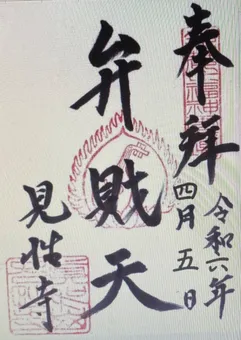 奉拜
令和六年
四月五日
弁財天
見性寺